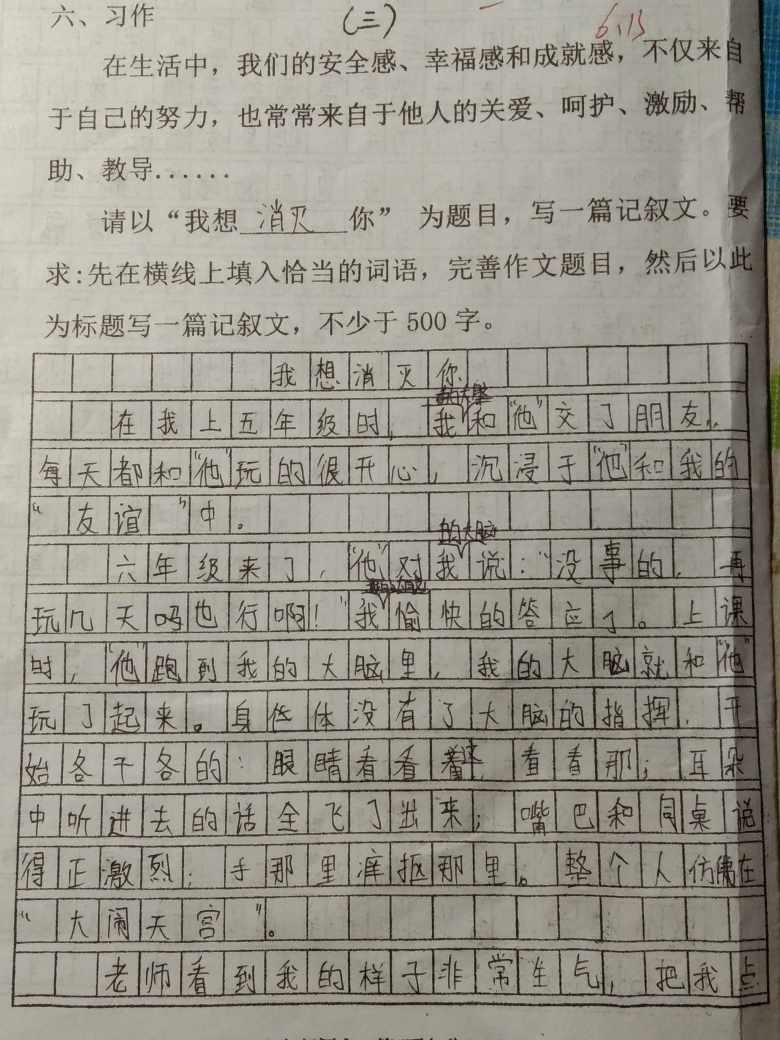 六、习作
(三)
6.13
在生活中，我们的安全感、幸福感和成就感，不仅来自
于自己的努力，也常常来自于他人的关爱、呵护、激励、帮
助、教导......
请以“我想 消灭 你” 为题目，写一篇记叙文。要
求:先在横线上填入恰当的词语，完善作文题目，然后以此
为标题写一篇记叙文，不少于 500 字。
我想消灭你
在我上五年级时，我和“他”交了朋友。
每天都和“他”玩的很开心，沉浸于“他”和我的
“友谊”中。
六年级来了，“他”对我的大脑说：“没事的，再
玩几天吗也行啊！”我愉快的答应了。上课
时，“他”跑到我的大脑里，我的大脑就和“他”
玩了起来。身体没有了大脑的指挥，开
始各干各的：眼睛看看这，查看那；耳朵
中听进去的话全飞了出来；嘴巴和同桌说
得正激烈；手那里痒抠那里。整个人仿佛在
“大闹天宫”。
老师看到我的样子非常生气，把我点